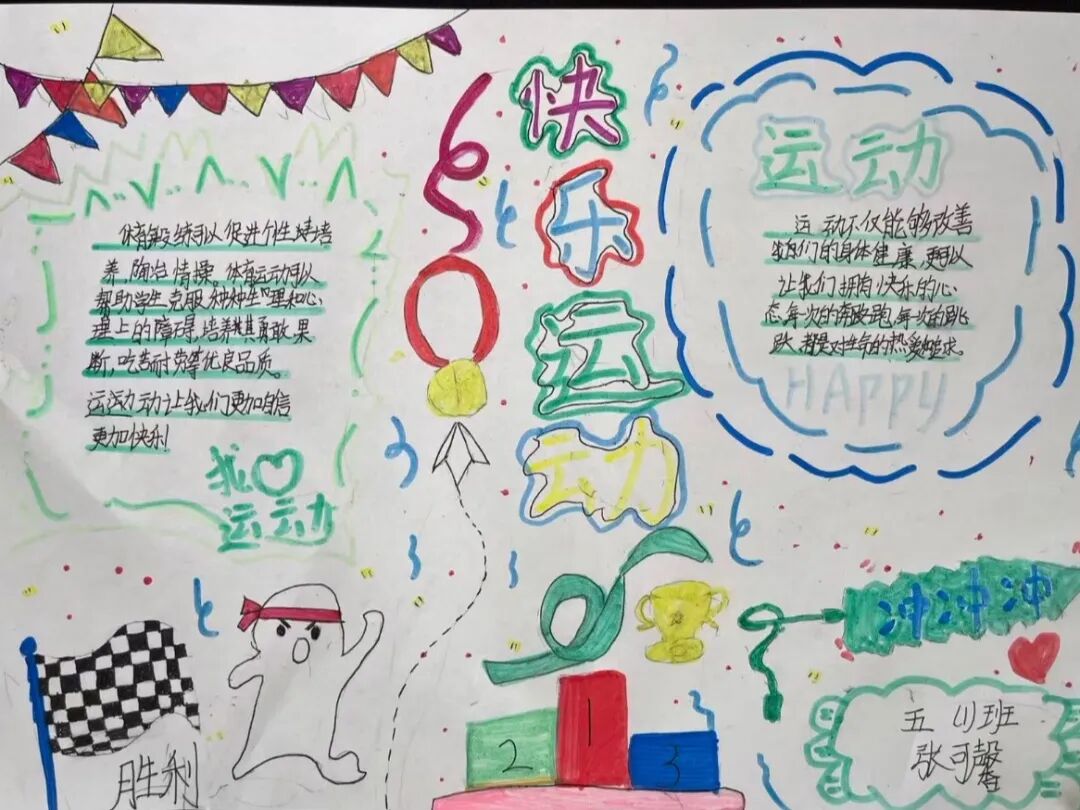 快
乐
运
动
体育锻练可以促进个性培
养,陶冶情操。体育运动可以
帮助学生克服种种生理和心
理上的障碍,培养其勇敢果
断,吃苦耐劳等优良品质。
运运动让我们更加自信
更加快乐!
我♡
运动
运动
运动不仅能够改善
我们的身体健康,更可以
让我们拥有快乐的心
态,每次的奔跑,每次的跳
跃,都是对生命的热爱和追求。
HAPPY
冲冲冲
胜利
2
1
3
五 班
张可馨